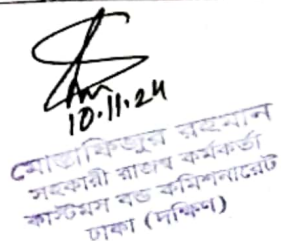 10.11.24
মোস্তাফিজুর রহমান
সহকারী রাজস্ব কর্মকর্তা
কাস্টমস বন্ড কমিশনারেট
ঢাকা (দক্ষিণ)